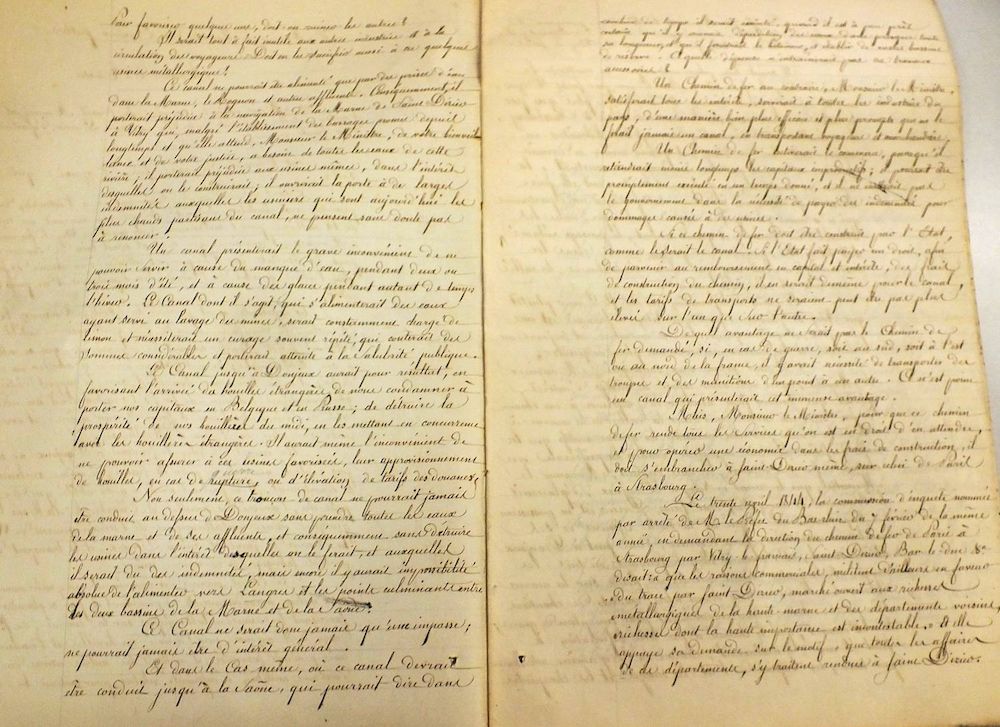 Pour favoriser quelques uns, doit-on ruiner les autres?
Il serait tout à fait inutile aux autres industries et à la
circulation des voyageurs. Doit-on les sacrifier aussi à ces quelques
usines métallurgiques?
Ce canal ne pourrait être alimenté que par des prises d'eau
dans la Marne, le Rognon et autres affluents. Conséquemment, il
porterait préjudice à la navigation de la Marne de Saint Dizier
à Vitry qui, malgré l'établissement des barrages promis depuis
longtemps et qu'elle attend, Monsieur le Ministre, de votre bienveil
lance et de votre justice, a besoin de toutes les eaux de cette
rivière; il porterait préjudice aux usines mêmes, dans l'intérêt
desquelles on le construirait; il ouvrirait la porte à de larges
indemnités auxquelles les usiniers qui sont aujourd'hui les
plus chauds partisans du canal, ne pensent sans doute pas
à renoncer.
Un canal présenterait le grave inconvénient de ne
pouvoir servir à cause du manque d'eau, pendant deux ou
trois mois d'été, et à cause des glaces pendant autant de temps
l'hiver. Le Canal dont il s'agit, qui s'alimenterait des eaux
ayant servi au lavage des mines, serait constamment chargé de
limon et nécessiterait un curage souvent répété, qui conterait des
sommes considérables et porterait atteinte à la salubrité publique.
Le Canal jusqu'à Donjeux aurait pour résultat, en
favorisant l'arrivée des houilles étrangères de nous condamner à
porter nos capitaux en Belgique et en Prusse; de détruire la
prospérité de nos houillères du midi, en les mettant en concurrence
avec les houillères étrangères. Il aurait même l'inconvénient de
ne pouvoir assurer à ces usines favorisées, leur approvisionnement
de houilles, en cas de rupture, ou d'élévation de tarifs des douanes.
Non seulement, ce tronçon de canal ne pourrait jamais
être conduit au dessus de Donjeux sans prendre toutes les eaux
de la marne et de ses affluents, et conséquemment sans détruire
les usines dans l'intérêt desquelles on le ferait, et auxquelles
il serait dû des indemnités, mais encore il y aurait impossibilité
absolue de l'alimenter vers Langres et les points culminants entre
les deux bassins de la Marne et de la Saône.
Ce Canal ne serait donc jamais qu'une impasse;
ne pourrait jamais être d'intérêt général.
Et dans le Cas même, où ce canal devrait
être conduit jusqu'à la Saône, qui pourrait dire dans
combien de temps il serait exécuté, quand il est à peu près
certain qu'il y aurait déperdition des eaux dans presque toute
sa longueur, et qu'il faudrait le bétonner, et établir de vastes bassins
de réserve. À quelles dépenses n'entraineraient pas ces travaux
accessoires?
Un Chemin de fer au contraire, Monsieur le Ministre,
satisferait tous les intérêts, servirait à toutes les industries du
pays; d'une manière bien plus efficace et plus prompte que ne le
ferait jamais un canal, en transportant voyageurs et marchandises.
Un Chemin de fer activerait le commerce, puisqu'il
attendrait moins longtemps les capitaux improductifs; il pourrait être
promptement exécuté en un temps donné, et il ne mettrait pas
le gouvernement dans la nécessité de payer des indemnités pour
dommages causés à des usines.
Si ce chemin de fer doit être construit par l'Etat,
comme le serait le canal. Si l'Etat fait payer un droit, afin
de parvenir au remboursement en capital et intérêts, des frais
de construction du chemin, il en serait de même pour le canal,
et les tarifs de transports ne seraient peut être pas plus
élevés sur l'un que sur l'autre.
De quel avantage ne serait pas le Chemin de
fer demandé, si, en cas de guerre, soit au sud, soit à l'est
ou au nord de la france, il y avait nécessité de transporter des
troupes et des munitions d'un point à un autre. Ce n'est point
un canal qui présenterait cet immense avantage.
Mais, Monsieur le Ministre, pour que ce chemin
de fer rende tous les services qu'on est en droit d'en attendre,
et pour opérer une économie dans les frais de construction, il
doit s'embrancher à Saint-Dizier même, sur celui de Paris
à Strasbourg.
Le trente avril 1844, la commission d'enquête nommée
par arrêté de M. le Préfet du Bas-rhin du 7 février de la même
année, en demandant la direction du chemin de fer de Paris à
Strasbourg par Vitry le français, Saint Dizier, Bar le duc &c
disait: « que les raisons commerciales, militent d'ailleurs en faveur
« du tracé par Saint-Dizier, marché ouvert aux richesses
« métallurgiques de la haute-marne et des départements voisins,
« richesses dont la haute importance est incontestable. » Et elle
appuye sa demande sur le motif « que toutes les affaires
« de ces départements, s'y traitent rendues à Saint Dizier.